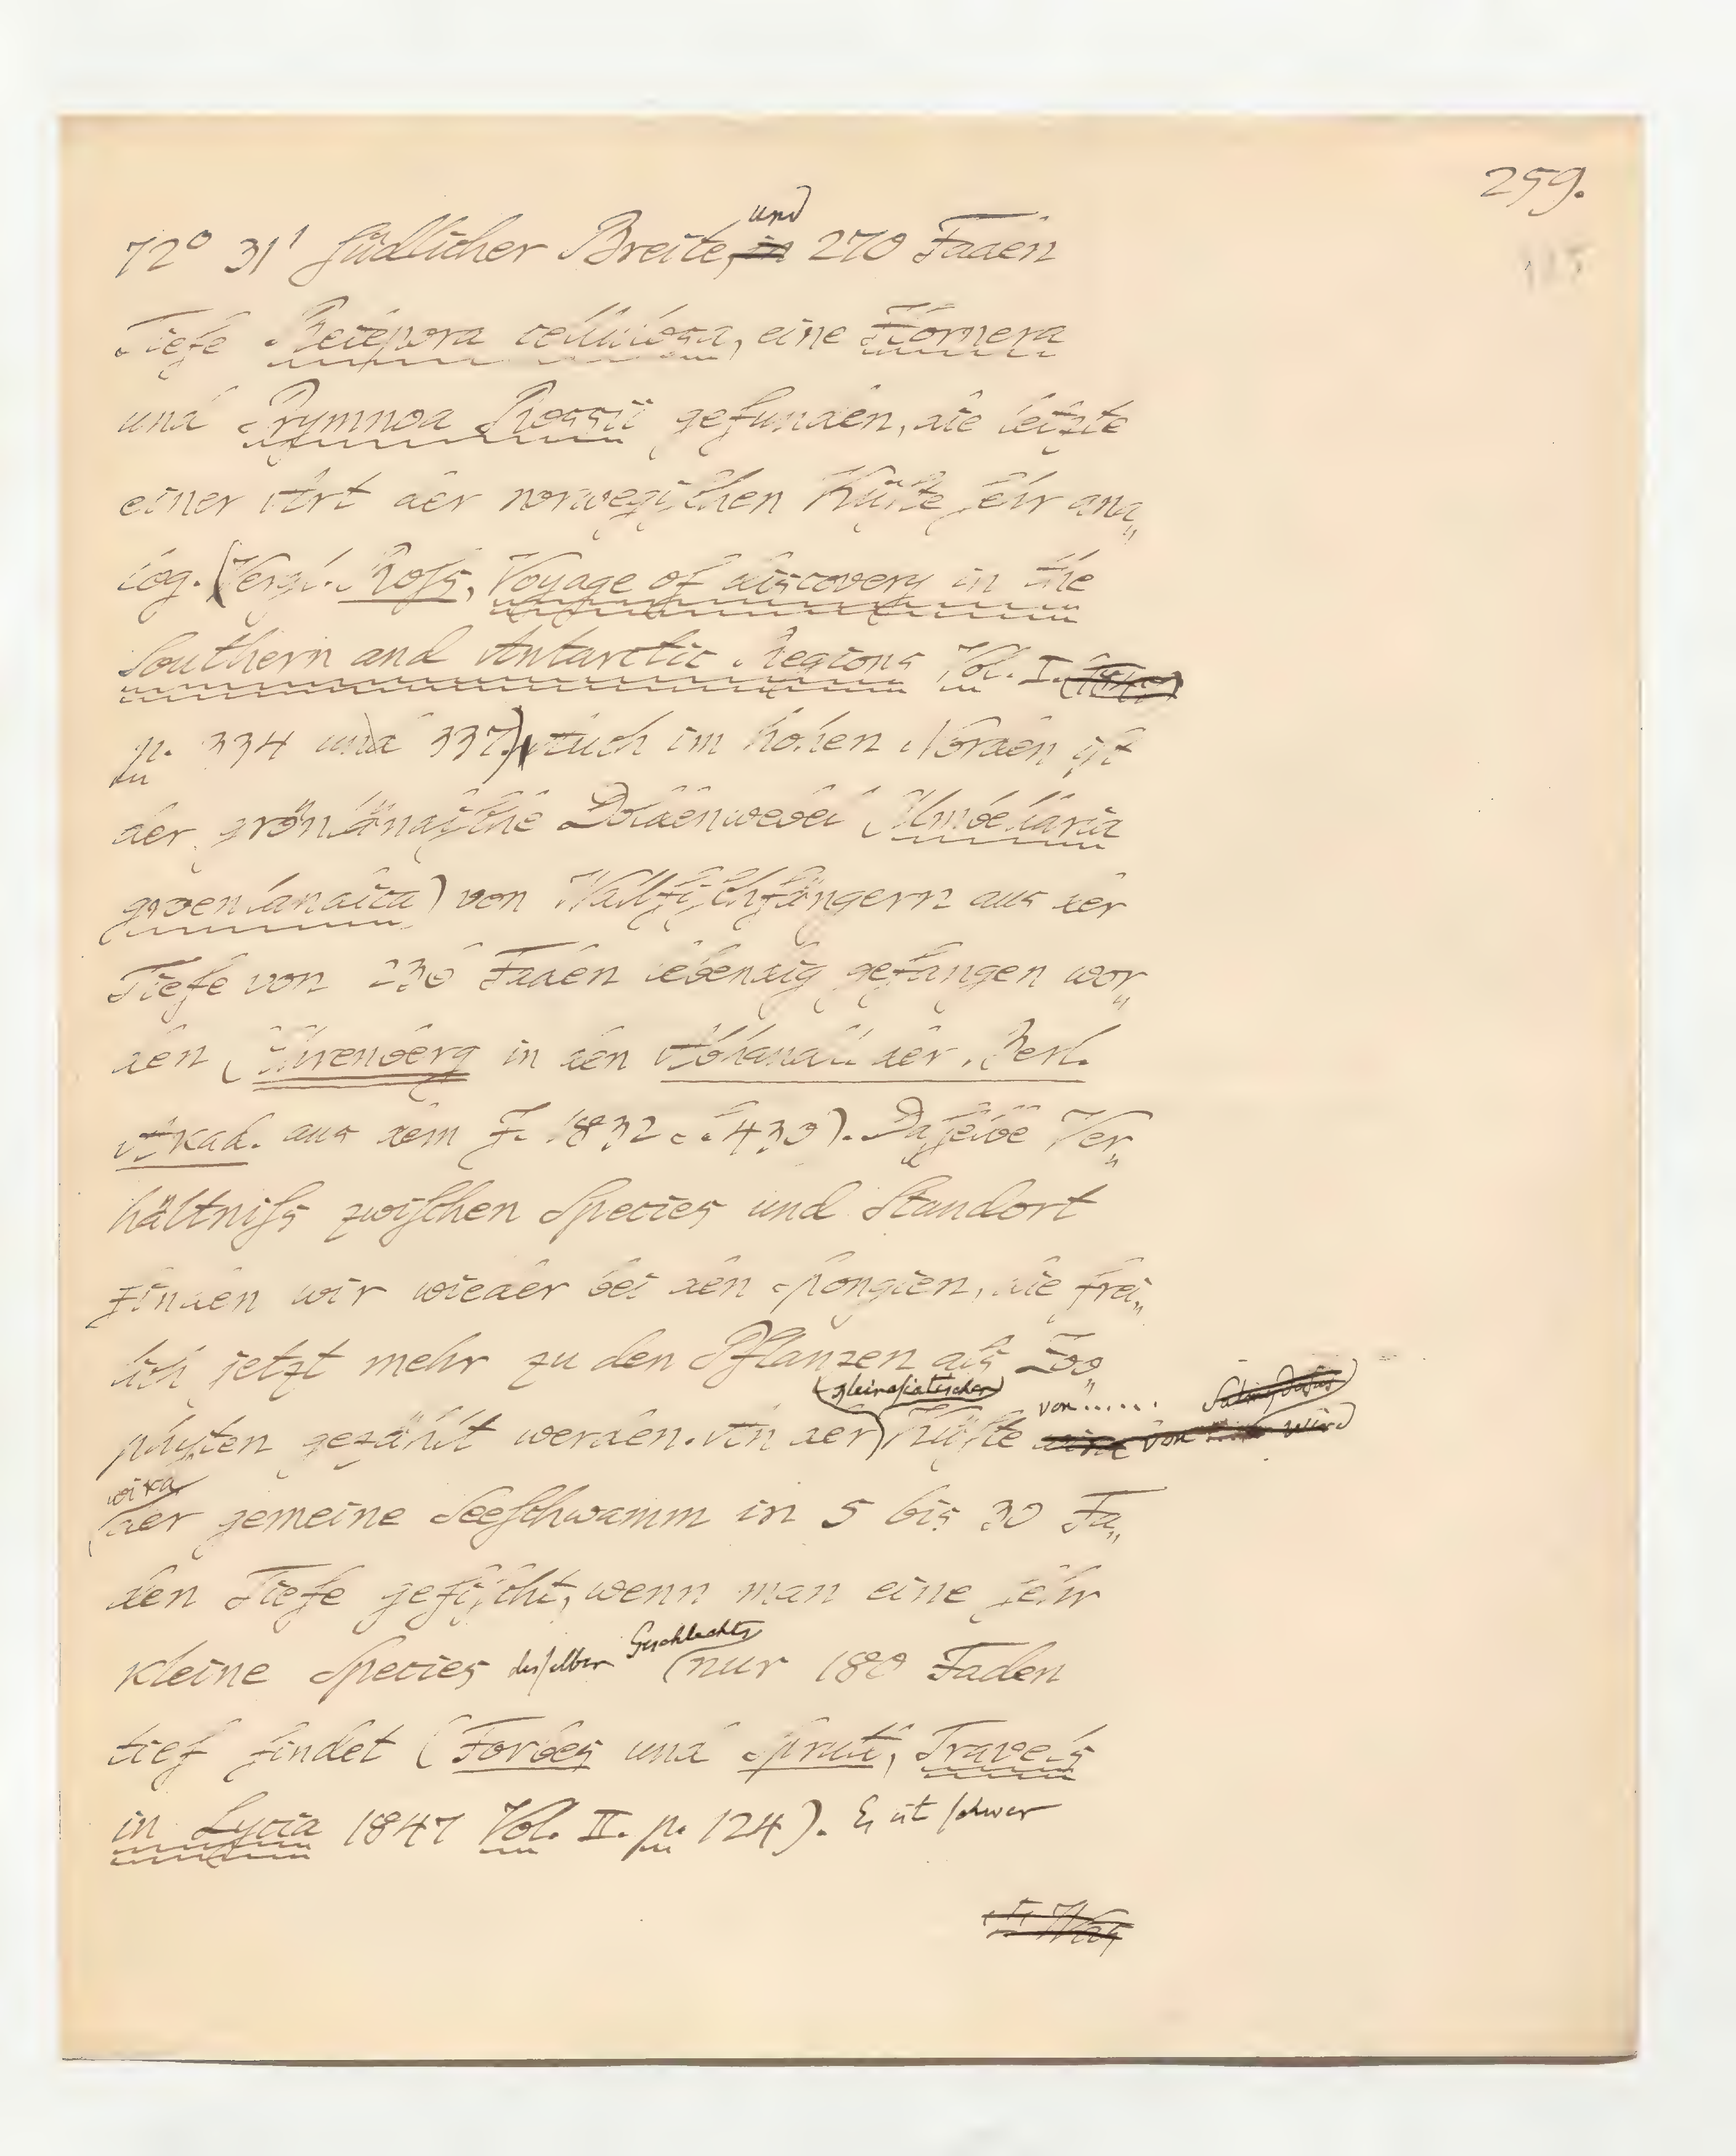 259.
und
72° 31' südlicher Breite, in 270 Faden
Tiefe Retepora cellulosa, eine Hornera
und Prymnoa Rossii gefunden, die letzte
einer Art der norwegischen Küste sehr ana„
log. (Vergl. Ross, Voyage of discovery in the
Southern and Antarctic Regions Vol. I.
p. 334 und 337) Auch im hohen Norden ist
der grönländische Doldenwedel (Umbellaria
groenlandica) von Wallfischfängern aus der
Tiefe von 236 Faden lebendig gefangen wor„
den (Ehrenberg in den Abhandl. der Berl.
Akad. aus dem J. 1832 S. 430). Dasselbe Ver„
hältniss zwischen Species und Standort
finden wir wieder bei den Spongien, die frei„
lich jetzt mehr zu den Pflanzen als Zoo„
(kleinasiatischer) von......
phyten gezählt werden. An der Küste von wird
wird
der gemeine Seeschwamm in 5 bis 30 Fa„
den Tiefe gefischt, wenn man eine sehr
kleine Species desselben Geschlechts (nur 180 Faden
tief findet (Forbes und Spratt, Travels
in Lycia 1847 Vol. II. p. 124). Es ist schwer
Was